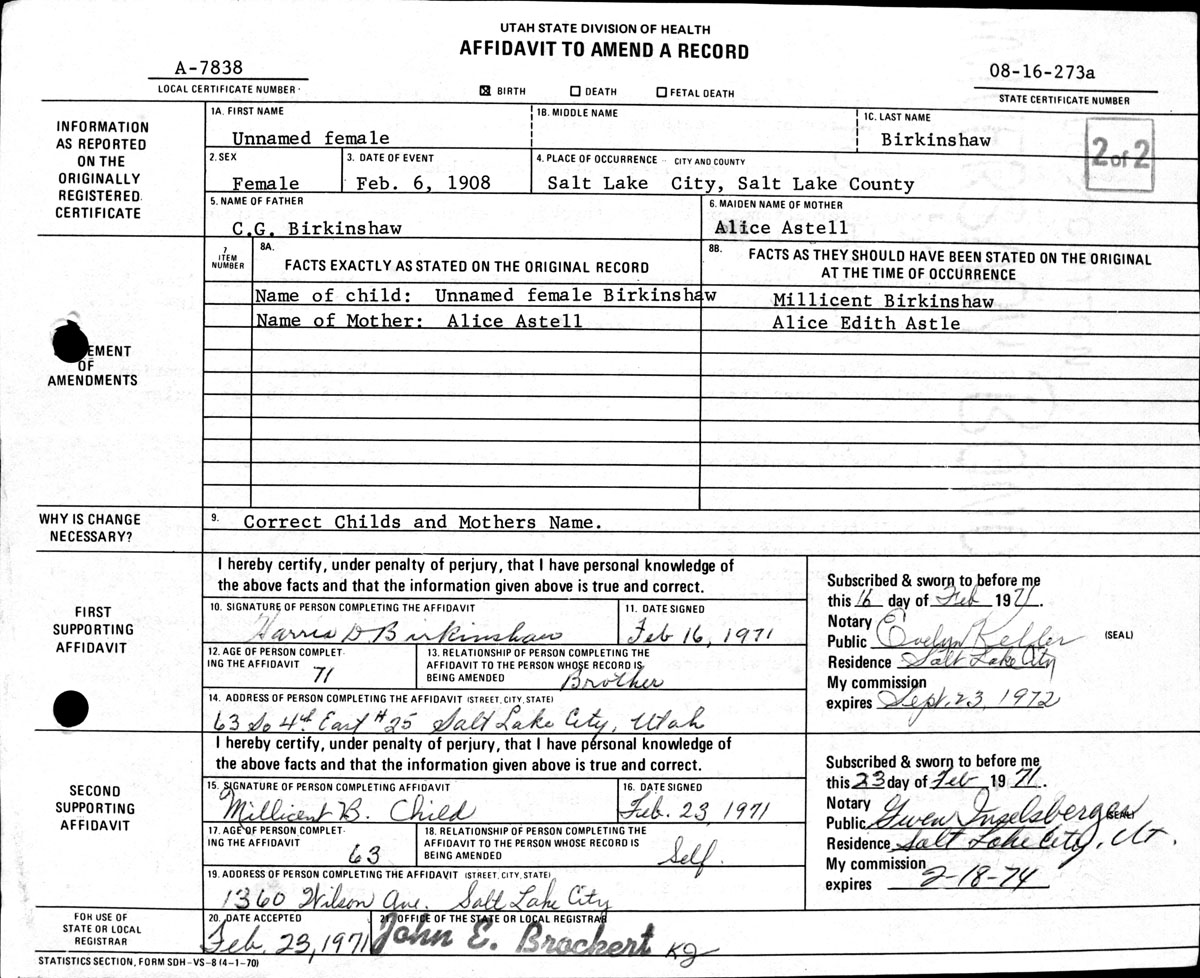 UTAH STATE DIVISION OF HEALTH
AFFIDAVIT TO AMEND A RECORD
A-7838
LOCAL CERTIFICATE NUMBER
☒ BIRTH ☐ DEATH ☐ FETAL DEATH
08-16-273a
STATE CERTIFICATE NUMBER
INFORMATION AS REPORTED ON THE ORIGINALLY REGISTERED CERTIFICATE
1A. FIRST NAME
Unnamed female
1B. MIDDLE NAME
1C. LAST NAME
Birkinshaw
2 of 2
2. SEX
Female
3. DATE OF EVENT
Feb. 6, 1908
4. PLACE OF OCCURRENCE CITY AND COUNTY
Salt Lake City, Salt Lake County
5. NAME OF FATHER
C.G. Birkinshaw
6. MAIDEN NAME OF MOTHER
Alice Astell
EMENT OF AMENDMENTS
7 ITEM NUMBER
8A. FACTS EXACTLY AS STATED ON THE ORIGINAL RECORD
8B. FACTS AS THEY SHOULD HAVE BEEN STATED ON THE ORIGINAL AT THE TIME OF OCCURRENCE
Name of child: Unnamed female Birkinshaw Millicent Birkinshaw
Name of Mother: Alice Astell Alice Edith Astle
WHY IS CHANGE NECESSARY?
9. Correct Childs and Mothers Name.
FIRST SUPPORTING AFFIDAVIT
I hereby certify, under penalty of perjury, that I have personal knowledge of
the above facts and that the information given above is true and correct.
10. SIGNATURE OF PERSON COMPLETING THE AFFIDAVIT
Harris D Birkinshaw
11. DATE SIGNED
Feb 16, 1971
12. AGE OF PERSON COMPLETING THE AFFIDAVIT
71
13. RELATIONSHIP OF PERSON COMPLETING THE AFFIDAVIT TO THE PERSON WHOSE RECORD IS BEING AMENDED
Brother
14. ADDRESS OF PERSON COMPLETING THE AFFIDAVIT (STREET, CITY, STATE)
63 So 4th East #25 Salt Lake City, Utah
Subscribed & sworn to before me
this 16 day of Feb 1971.
Notary
Public Evelyn Keller (SEAL)
Residence Salt Lake City
My commission
expires Sept. 23, 1972
SECOND SUPPORTING AFFIDAVIT
I hereby certify, under penalty of perjury, that I have personal knowledge of
the above facts and that the information given above is true and correct.
15. SIGNATURE OF PERSON COMPLETING THE AFFIDAVIT
Millicent B. Child
16. DATE SIGNED
Feb. 23, 1971
17. AGE OF PERSON COMPLETING THE AFFIDAVIT
63
18. RELATIONSHIP OF PERSON COMPLETING THE AFFIDAVIT TO THE PERSON WHOSE RECORD IS BEING AMENDED
Self
19. ADDRESS OF PERSON COMPLETING THE AFFIDAVIT (STREET, CITY, STATE)
1360 Wilson Ave. Salt Lake City
Subscribed & sworn to before me
this 23 day of Feb 1971.
Notary
Public Gwen Ingelsbergen (SEAL)
Residence Salt Lake City, Ut.
My commission
expires 2-18-74
FOR USE OF STATE OR LOCAL REGISTRAR
20. DATE ACCEPTED
Feb. 23, 1971
21. OFFICE OF THE STATE OR LOCAL REGISTRAR
John E. Brockert KG
STATISTICS SECTION, FORM SDH-VS-8 (4-1-70)